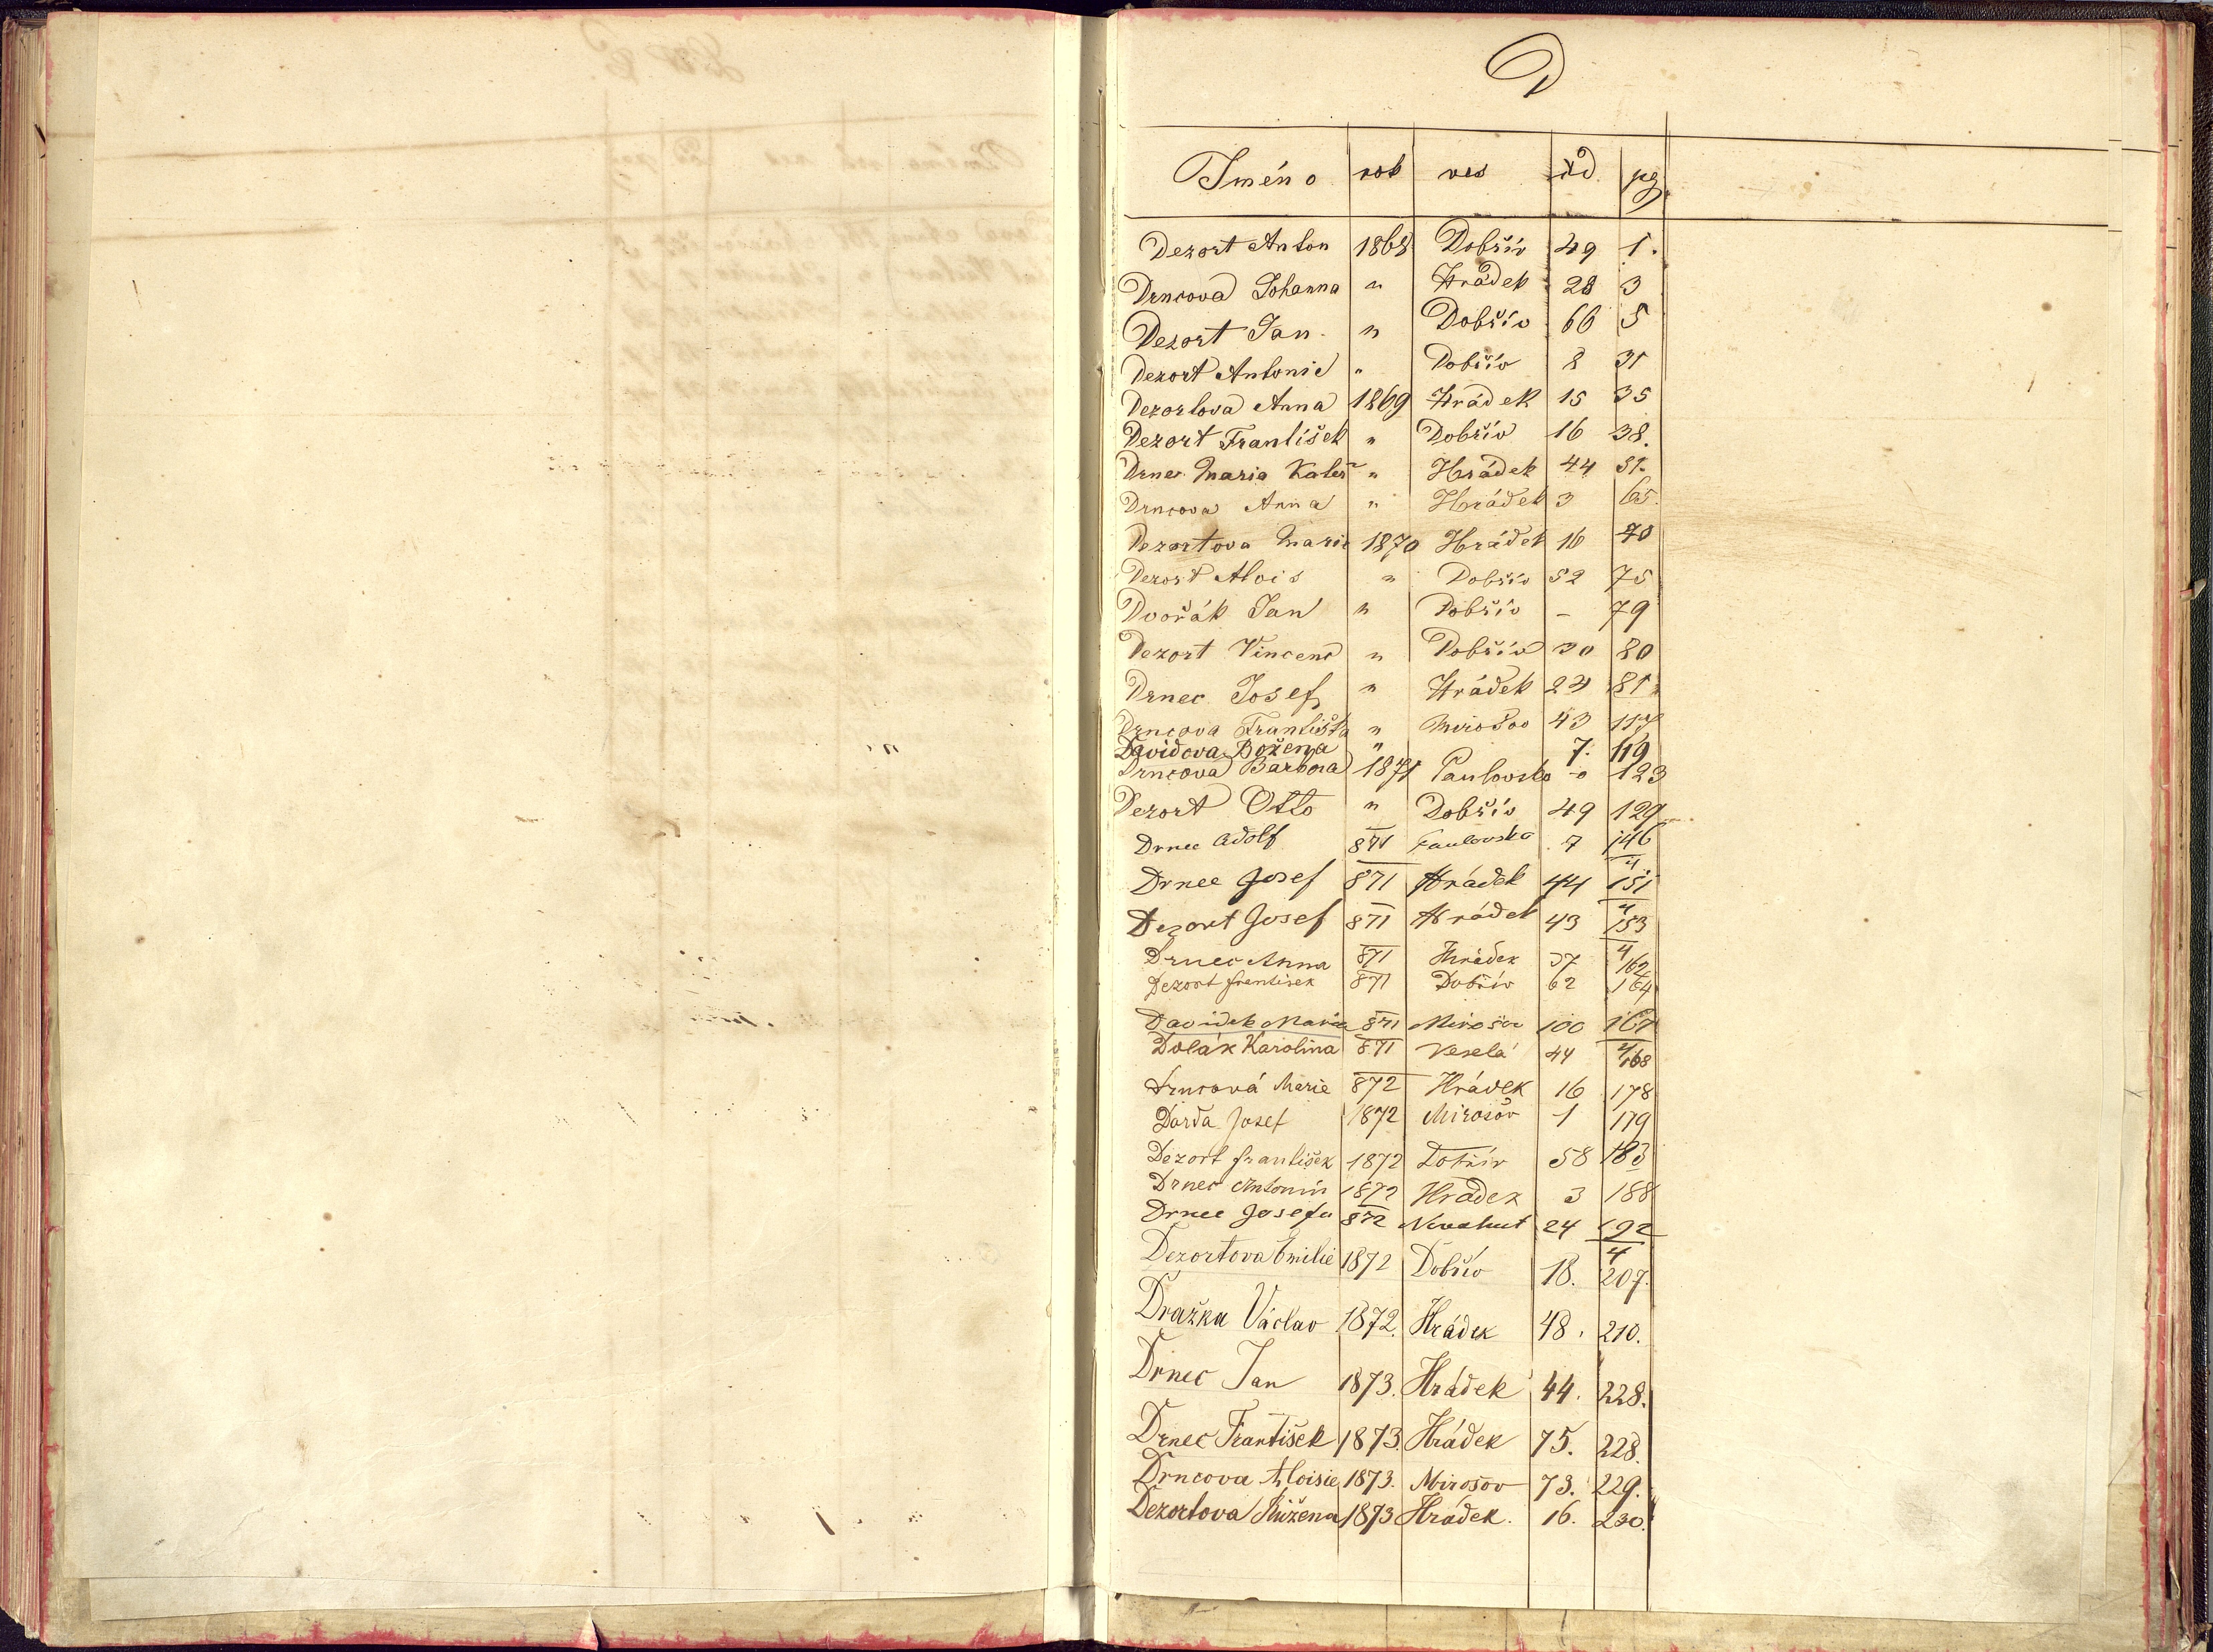 D
Jméno rok ves čd pg.
Dezort Anton 1868 Dobřív 49 1.
Drncova Johanna " Hrádek 28 3
Dezort Jan " Dobřív 66 5
Dezort Antonie " Dobřív 8 31
Dezortova Anna 1869 Hrádek 15 35
Dezort František " Dobřív 16 38.
Drnec Maria Kateř " Hrádek 44 51.
Drncova Anna " Hrádek 3 65.
Dezortova Marie 1870 Hrádek 16 70
Dezort Alois " Dobřív 52 75
Dvořák Jan " Dobřív – 79
Dezort Vincenc " Dobřív 30 80
Drnec Josef " Hrádek 24 81
Drncova Františka " Mirošov 43 117
Davidova Božena " 7. 119
Drncova Barbora 1871 Paulovsko 123
Dezort Otto " Dobřív 49 129
Drnec Adolf 871 Paulovsko 7 146
Drnec Josef 871 Hrádek 44 4/151
Dezort Josef 871 Hrádek 43 4/153
Drnec Anna 871 Hrádek 37 4/162
Dezort František 871 Dobřív 62 164
Davidek Maria 871 Mirošov 100 167
Dolák Karolina 871 Veselá 44 4/168
Drncová Marie 872 Hrádek 16 178
Darda Josef 1872 Mirošov 1 179
Dezort František 1872 Dobřív 58 183
Drnec Antonín 1872 Hrádek 3 188
Drnec Josefa 872 Novahut 24 192
Dezortova Emilie 1872 Dobřív 18. 4/207.
Dražka Václav 1872. Hrádek 48. 210.
Drnec Jan 1873. Hrádek 44. 228.
Drnec František 1873. Hrádek 75. 228.
Drncova Aloisie 1873. Mirošov 73. 229.
Dezortova Růžena 1873 Hrádek. 16. 230.